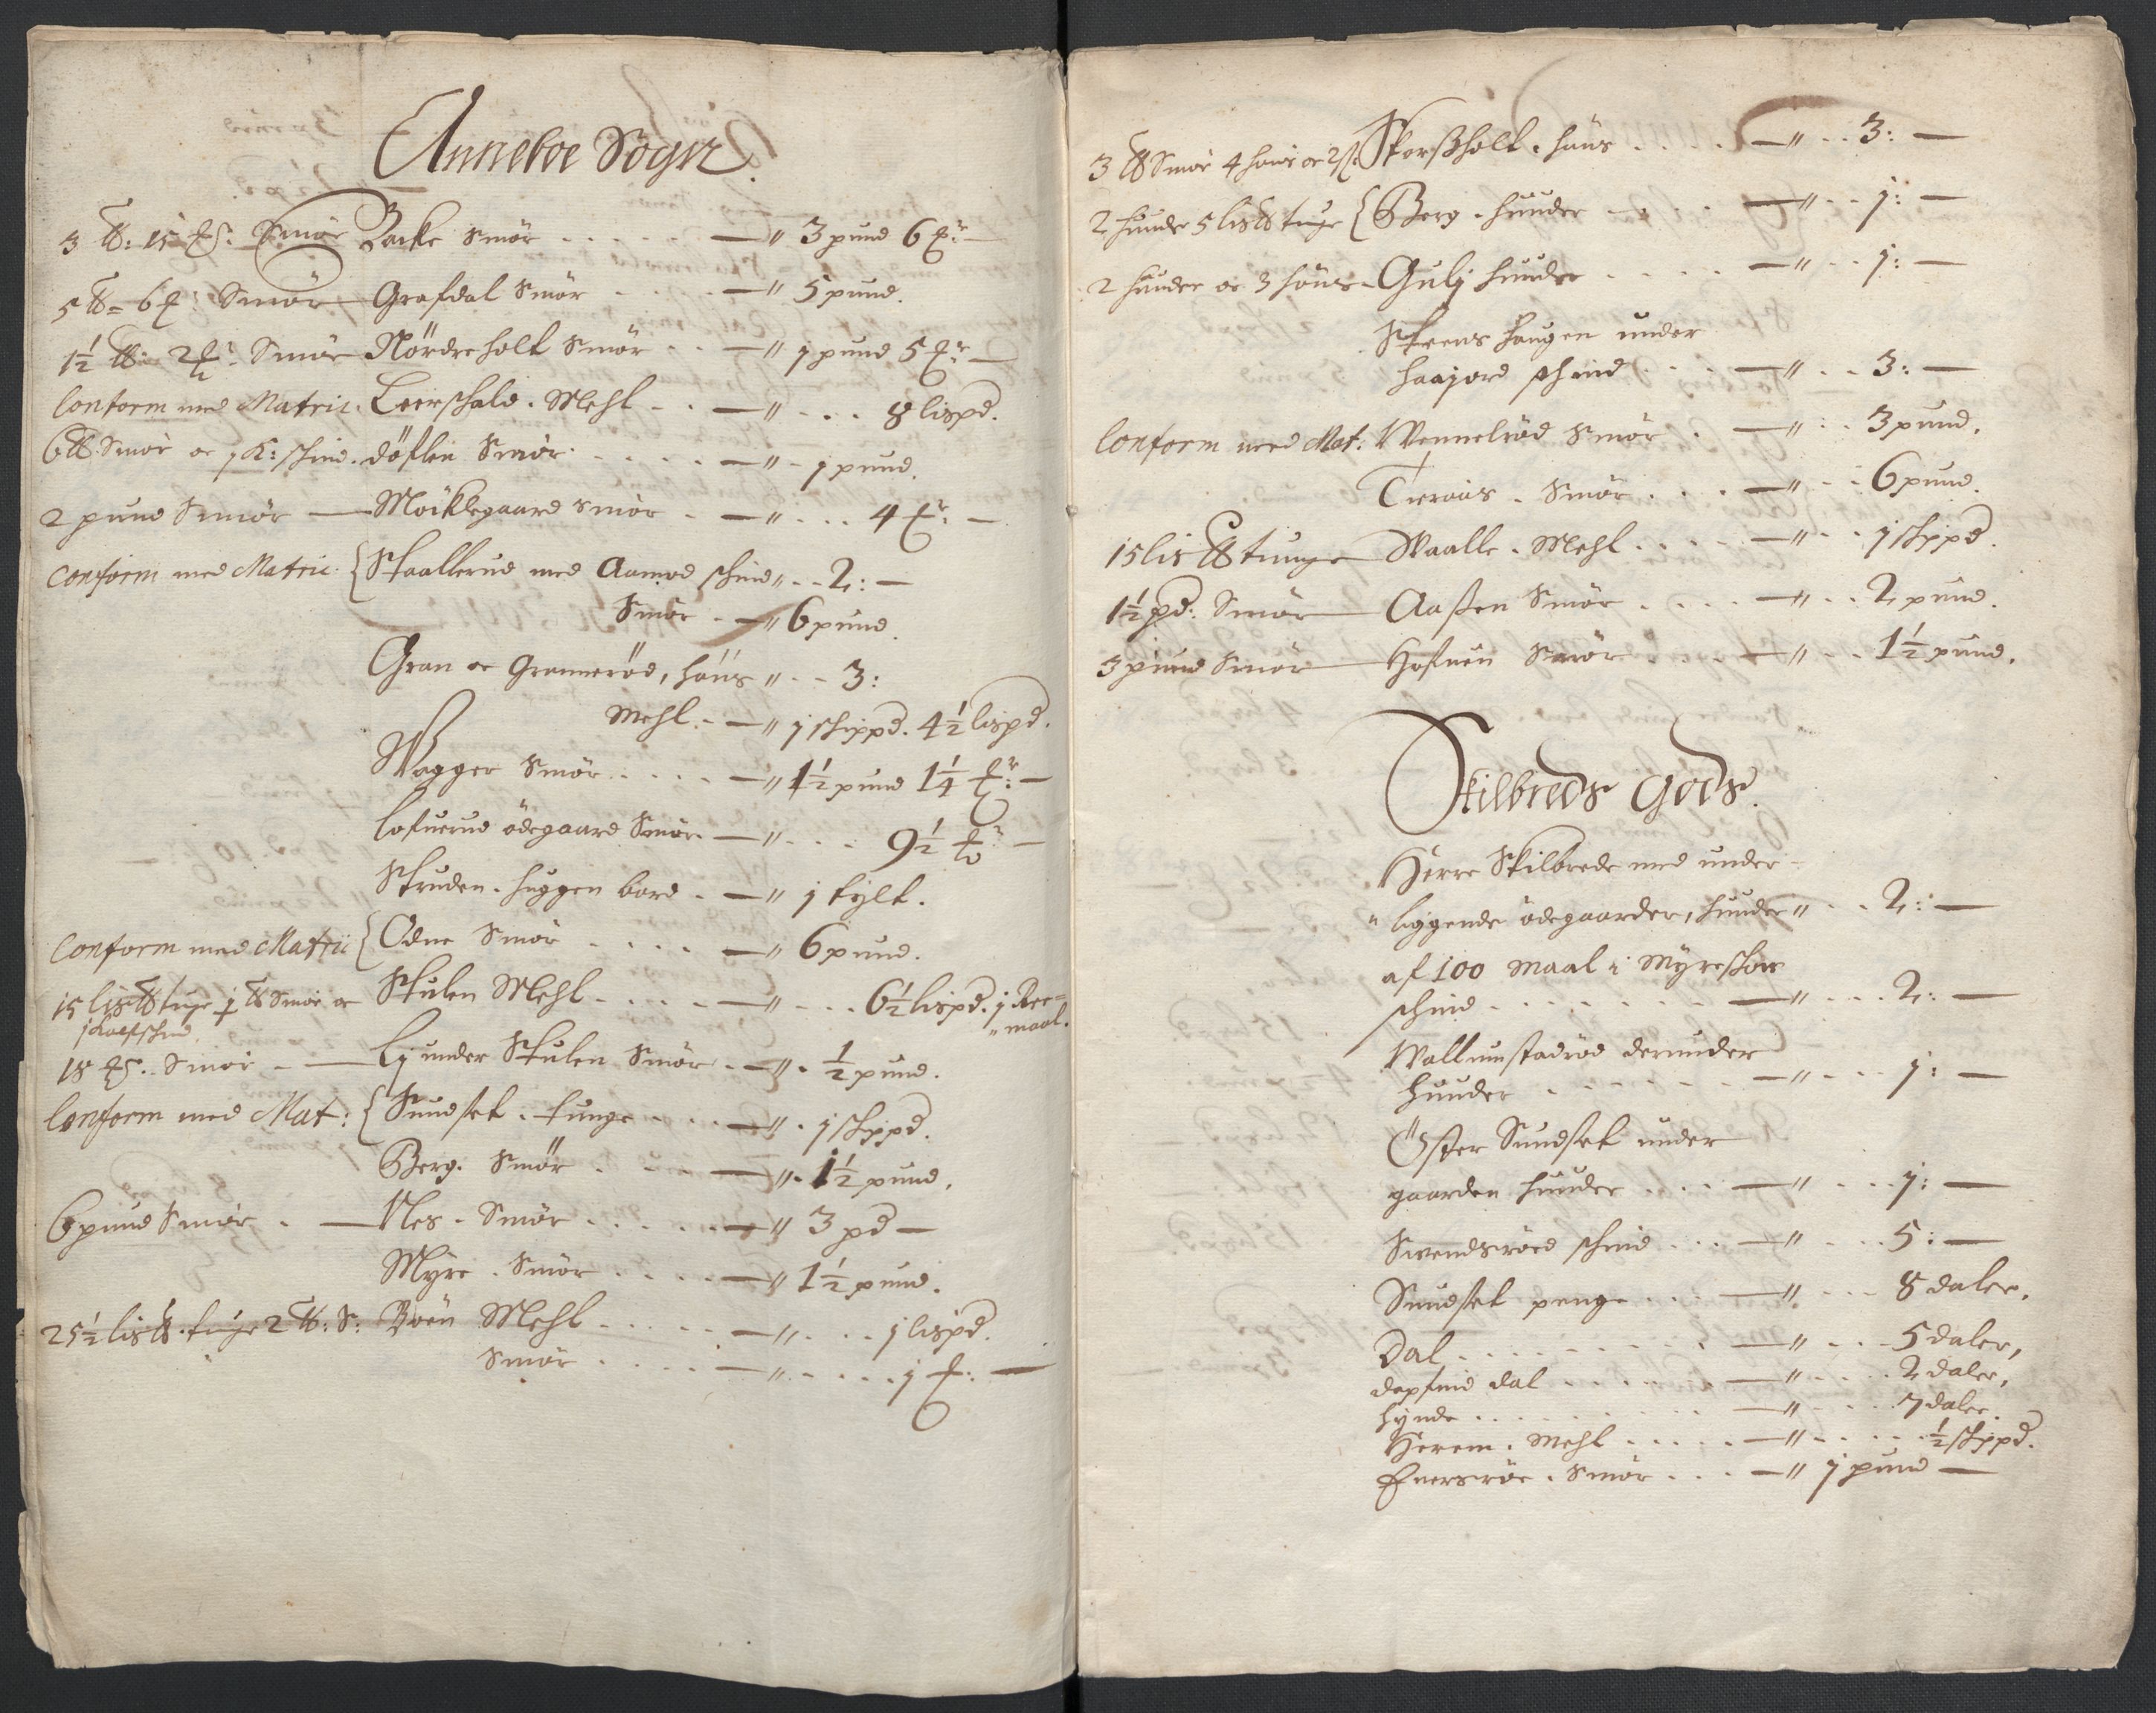 Anneboe Sogn
3 ℔: 15 ... Smör Backe Smör . . . . . — " 3 pund 6 ...
5 ℔ 6 ... Smör — Grafdal Smör . . . — " 5 pund.
1½ ℔: 2 ... Smör Nördreholt Smör . . — " 1 pund 5 ...
Conform med Matric. Leerskald. Mehl . . — " . . . 8 lispd.
6 ℔ Smör oc 1 K: skind. döflen Smör . . . . — " - 1 pund.
2 pund Smör — Möcklegaard Smör . — " . . . 4 ... —
Conform med Matric. { Staallerud med Aamod skind " . . 2: —
Smör . — " 6 pund.
Gran oc Granneröd, höns " . . 3:
Mehl . — " 1 skippd. 4½ lispd.
Wagger Smör . . . . — " 1½ pund 1¼ ... —
Lofuerud ödegaard Smör — " . . . 9½ ... —
Struden. huggen bord . — " 1 tylt.
Conform med Matric { Odne Smör . . . . — " 6 pund.
15 lis℔ tunge 1 ℔ Smör oc Skulen Mehl . . . . — " . . . 6½ lispd. 1 Ree=
1 Kalfskind. "maal.
18 ... Smör — Lj under Skulen Smör . — " . ½ pund.
Conform med Mat: { Sundset. tunge . . . — " . 1 skppd.
Berg. Smör . . . . — " . 1½ pund.
6 pund Smör . — Nes. Smör . . . . . — " 3 pd —
Myre. Smör . . . . — " 1½ pund.
25½ lis℔. tunge 2 ℔: S: Boen Mehl . . . . . — " . . . 1 lispd.
Smör . . . . — " . . . . 1 ... —
3 ℔ Smör 4 höns oc 2 ... Korssholt. höns . . . . — " . . 3: —
2 hunder 5 lis℔ tunge { Berg. huuder . . . . — " . . 1: —
2 huuder oc 3 höns - Gulj huuder . . . . — " . . 1: —
Steens haugen under
haajord skind . . . — " . . 3: —
Conform med Mat: Wennelröd Smör . — " . . 3 pund.
Tveraas. Smör . . . — " . . 6 pund.
15 lis℔ tunge Waalle. Mehl . . . . — " . . 1 skppd.
1½ pd: Smör — Aassen Smör . . . . — " . . 2 pund.
3 pund Smör — Hofuen Smör . . . — " . . 1½ pund.
Skilbreds Gods.
Herre Skilbrede med under-
"liggende ödegaarder, huuder " . . 2: —
af 100 maal i Myreskow
skind . . . . . . . — " . . . 2: —
Wallumstadröd derunder
huuder . . . . . . — " . . . 1: —
Öster Sundset under
gaarden huuder . . . — " . . . 1: —
Swendsröed skind . . . — " . . . 5: —
Sundset penge . . . — " . . . 8 daler.
Dal . . . . . . . . — " . . . 5 daler,
dapfnid dal . . . . . — " . . . 2 daler,
hynde . . . . . . . — " . . . 7 daler.
Herem. Mehl . . . . . — " . . . ½ skppd.
Eversröe. Smör . . . — " 1 pund —